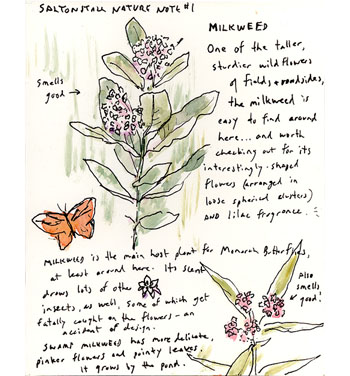 SALTONSTALL NATURE NOTE #1
MILKWEED
One of the taller,
sturdier wildflowers
of fields + roadsides,
the milkweed is
easy to find around
here... and worth
checking out for its
interestingly-shaped
flowers (arranged in
loose spherical clusters)
AND lilac fragrance.
Smells
good →
MILKWEED is the main host plant for Monarch Butterflies,
at least around here. Its scent
draws lots of other
insects, as well, some of which get
fatally caught on the flowers - an
accident of design.
SWAMP MILKWEED has more delicate,
pinker flowers and pointy leaves;
it grows by the pond.
Also
smells
good!